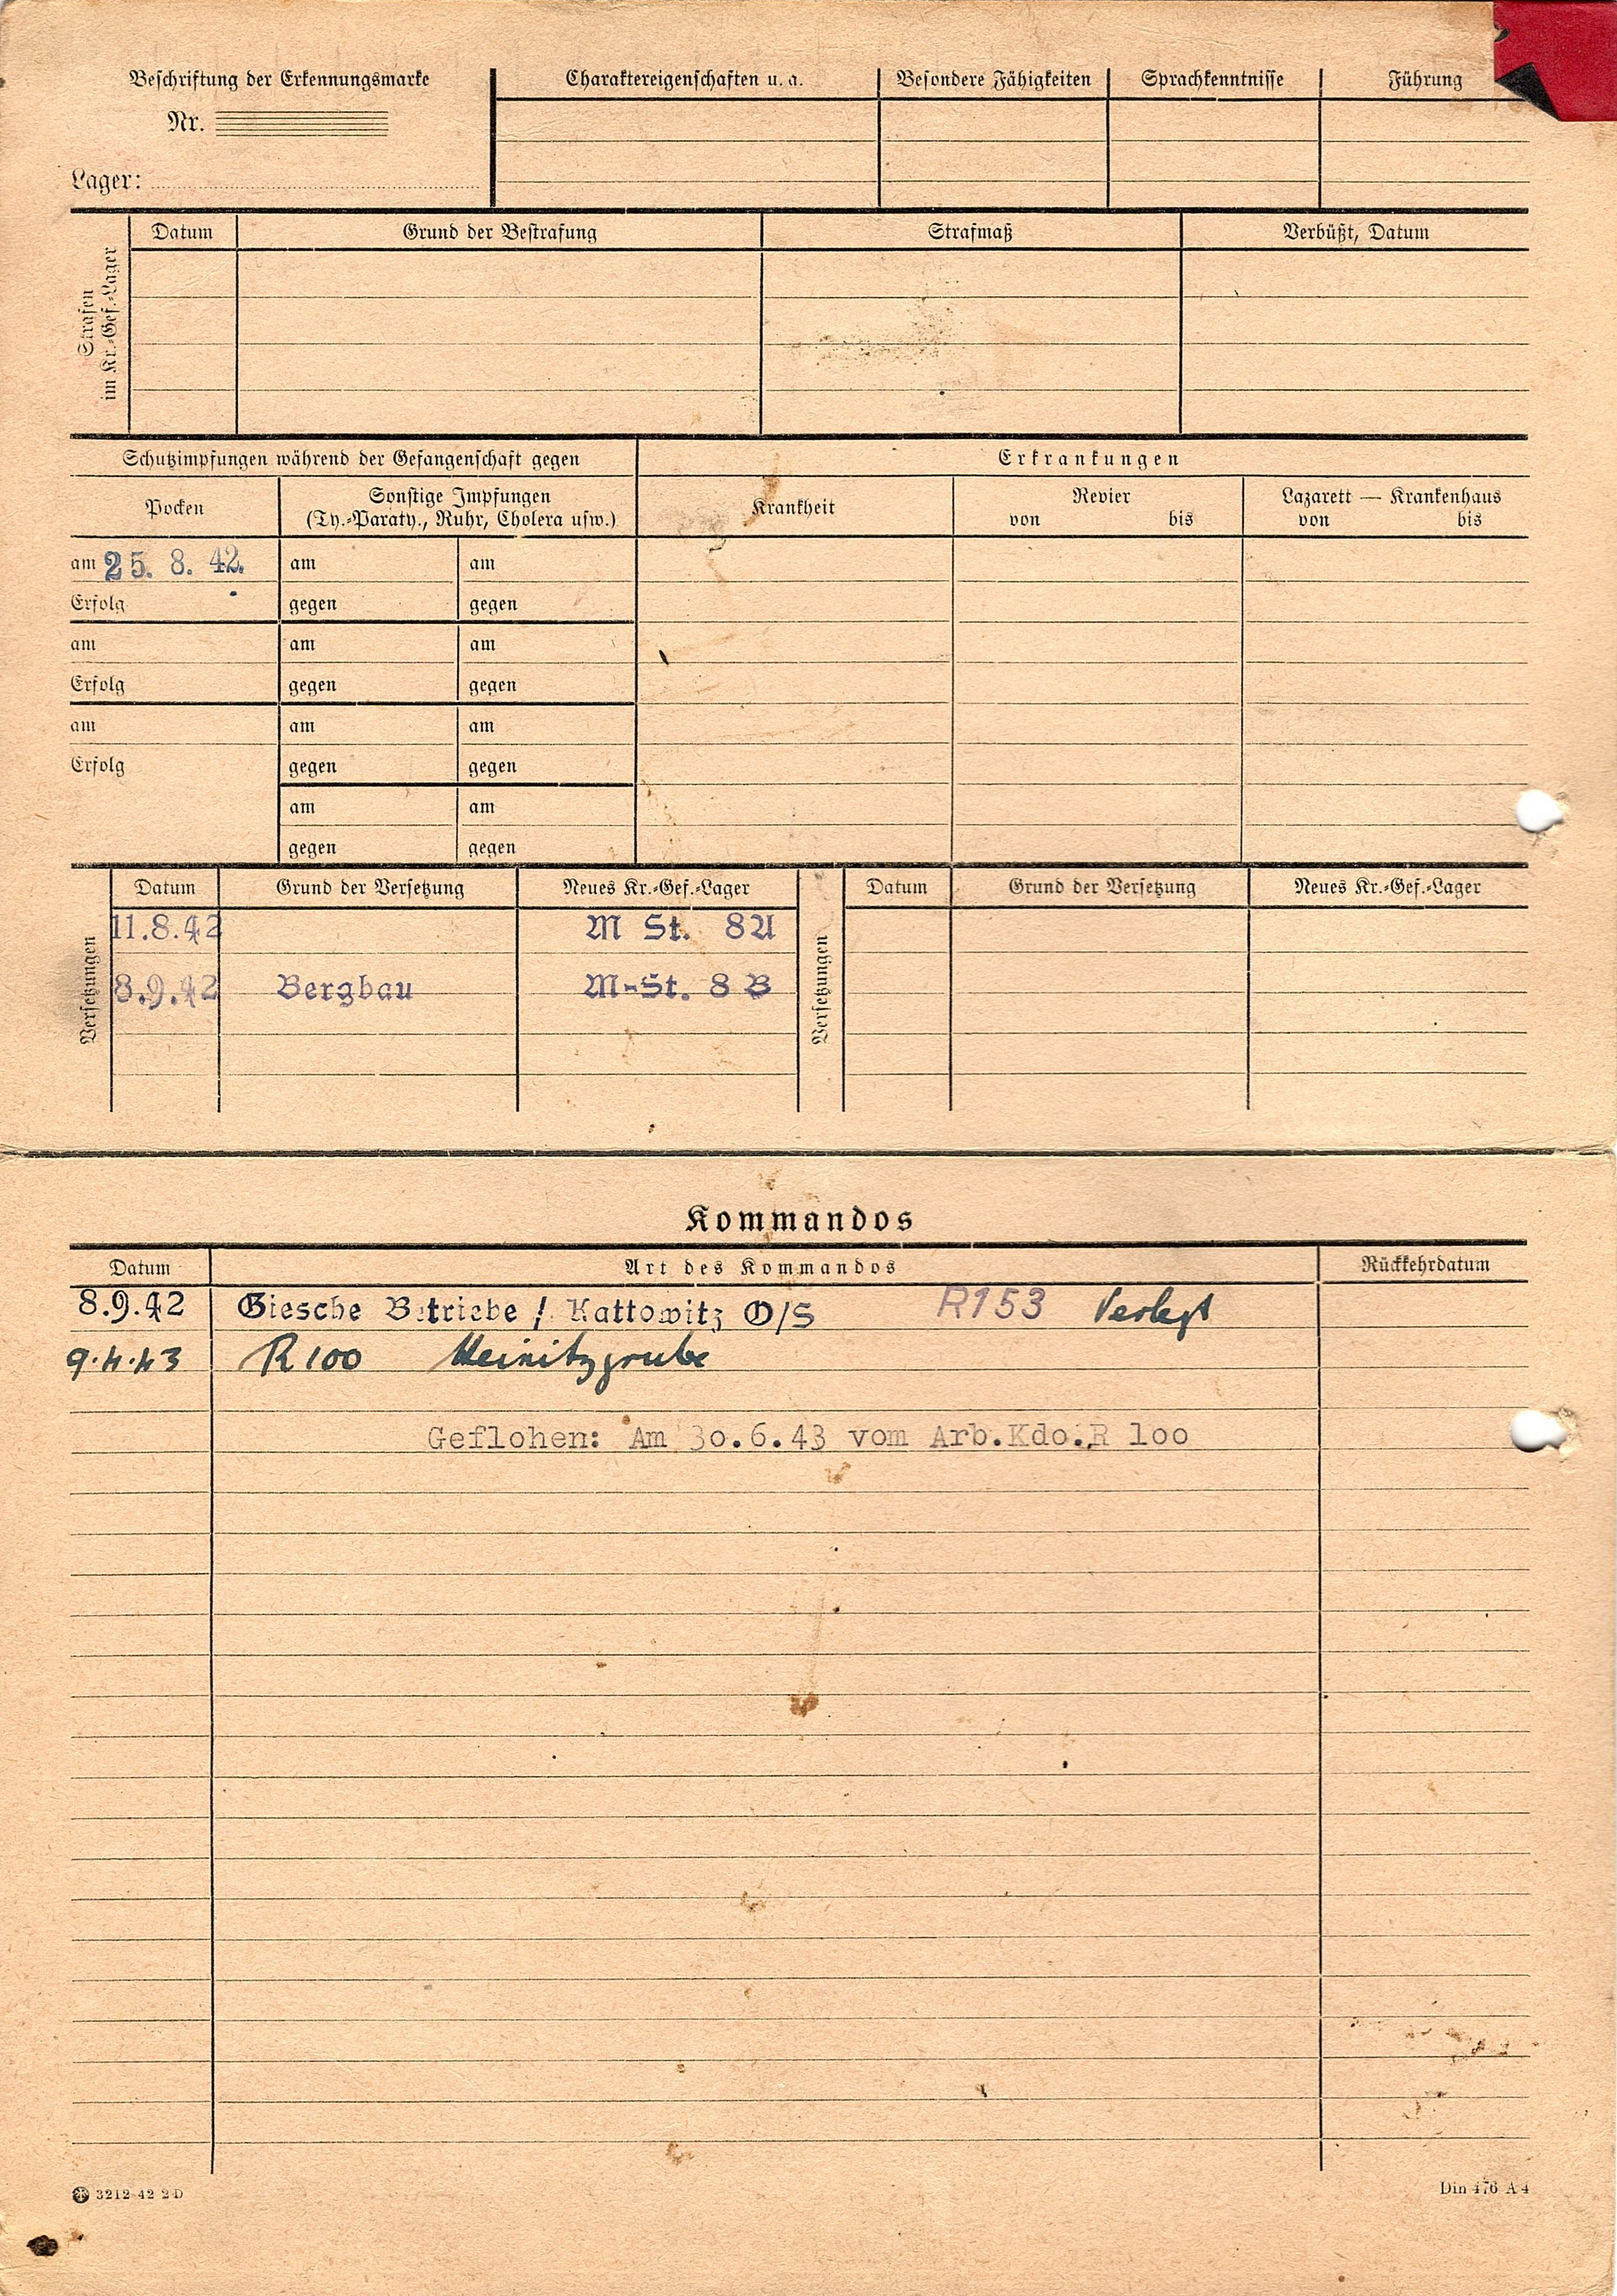 Beschriftung der Erkennungsmarke
Nr.
Lager:
Charaktereigenschaften u. a.
Besondere Fähigkeiten
Sprachkenntnisse
Führung
Strafen im Kr.-Gef.-Lager
Datum Grund der Bestrafung Strafmaß Verbüßt, Datum
Schutzimpfungen während der Gefangenschaft gegen
Erkrankungen
Pocken
Sonstige Impfungen
(Ty.-Paraty., Ruhr, Cholera usw.)
Krankheit
Revier
von bis
Lazarett — Krankenhaus
von bis
am 25. 8. 42. am am
Erfolg gegen gegen
am am am
Erfolg gegen gegen
am am am
Erfolg gegen gegen
am am
gegen gegen
Versetzungen
Datum Grund der Versetzung Neues Kr.-Gef.-Lager
11.8.42 M St. 8A
8.9.42 Bergbau M-St. 8 B
Versetzungen
Datum Grund der Versetzung Neues Kr.-Gef.-Lager
Kommandos
Datum Art des Kommandos Rückkehrdatum
8.9.42 Giesche Betriebe / Kattowitz O/S R153 Verlegt
9.4.43 R 100 Heinitzgrube
Geflohen: Am 30.6.43 vom Arb.Kdo.R 100
3212 42 2 D
Din 476 A 4